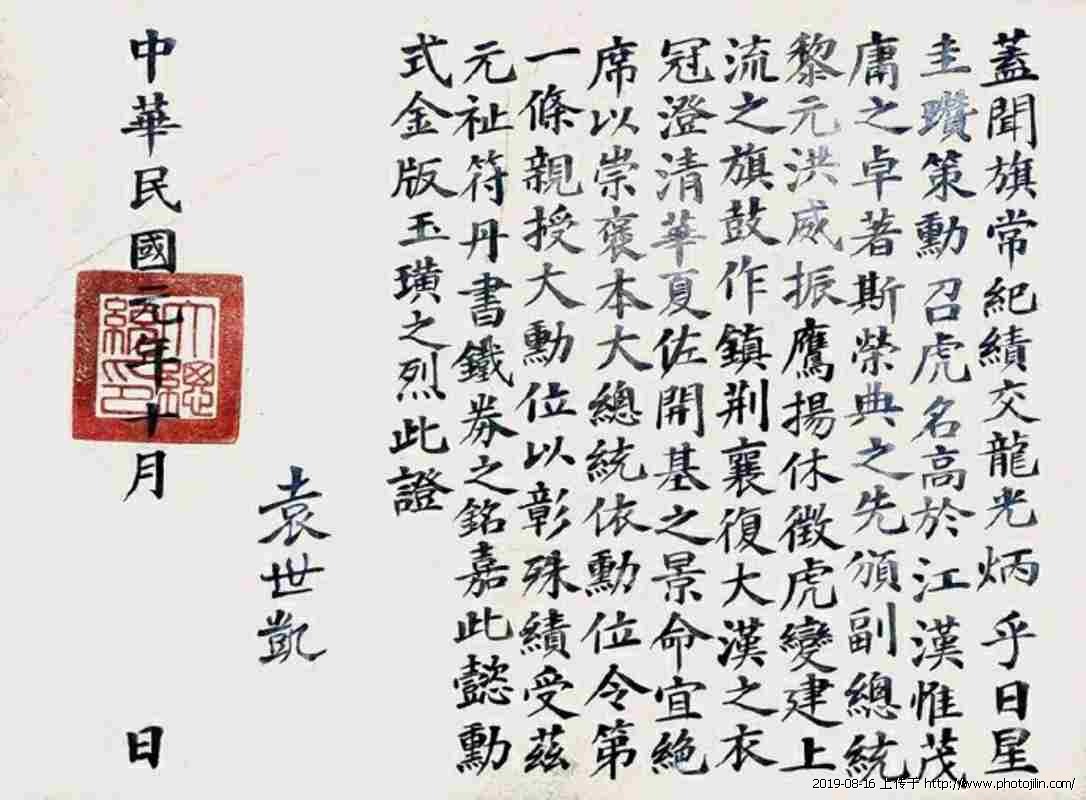 蓋聞旗常紀績交龍光炳乎日星
圭瓚策勳召虎名高於江漢惟茂
庸之卓著斯榮典之先頒副總統
黎元洪威振鷹揚休徵虎變建上
流之旗鼓作鎮荆襄復大漢之衣
冠澄清華夏佐開基之景命宜絶
席以崇褒本大總統依勳位令第
一條親授大勳位以彰殊績受茲
元祉符丹書鐵券之銘嘉此懿勳
式金版玉璜之烈此證
袁世凱
中華民國元年十月 日
大總統印
2019-08-16 上传于 http://www.photojilin.com/